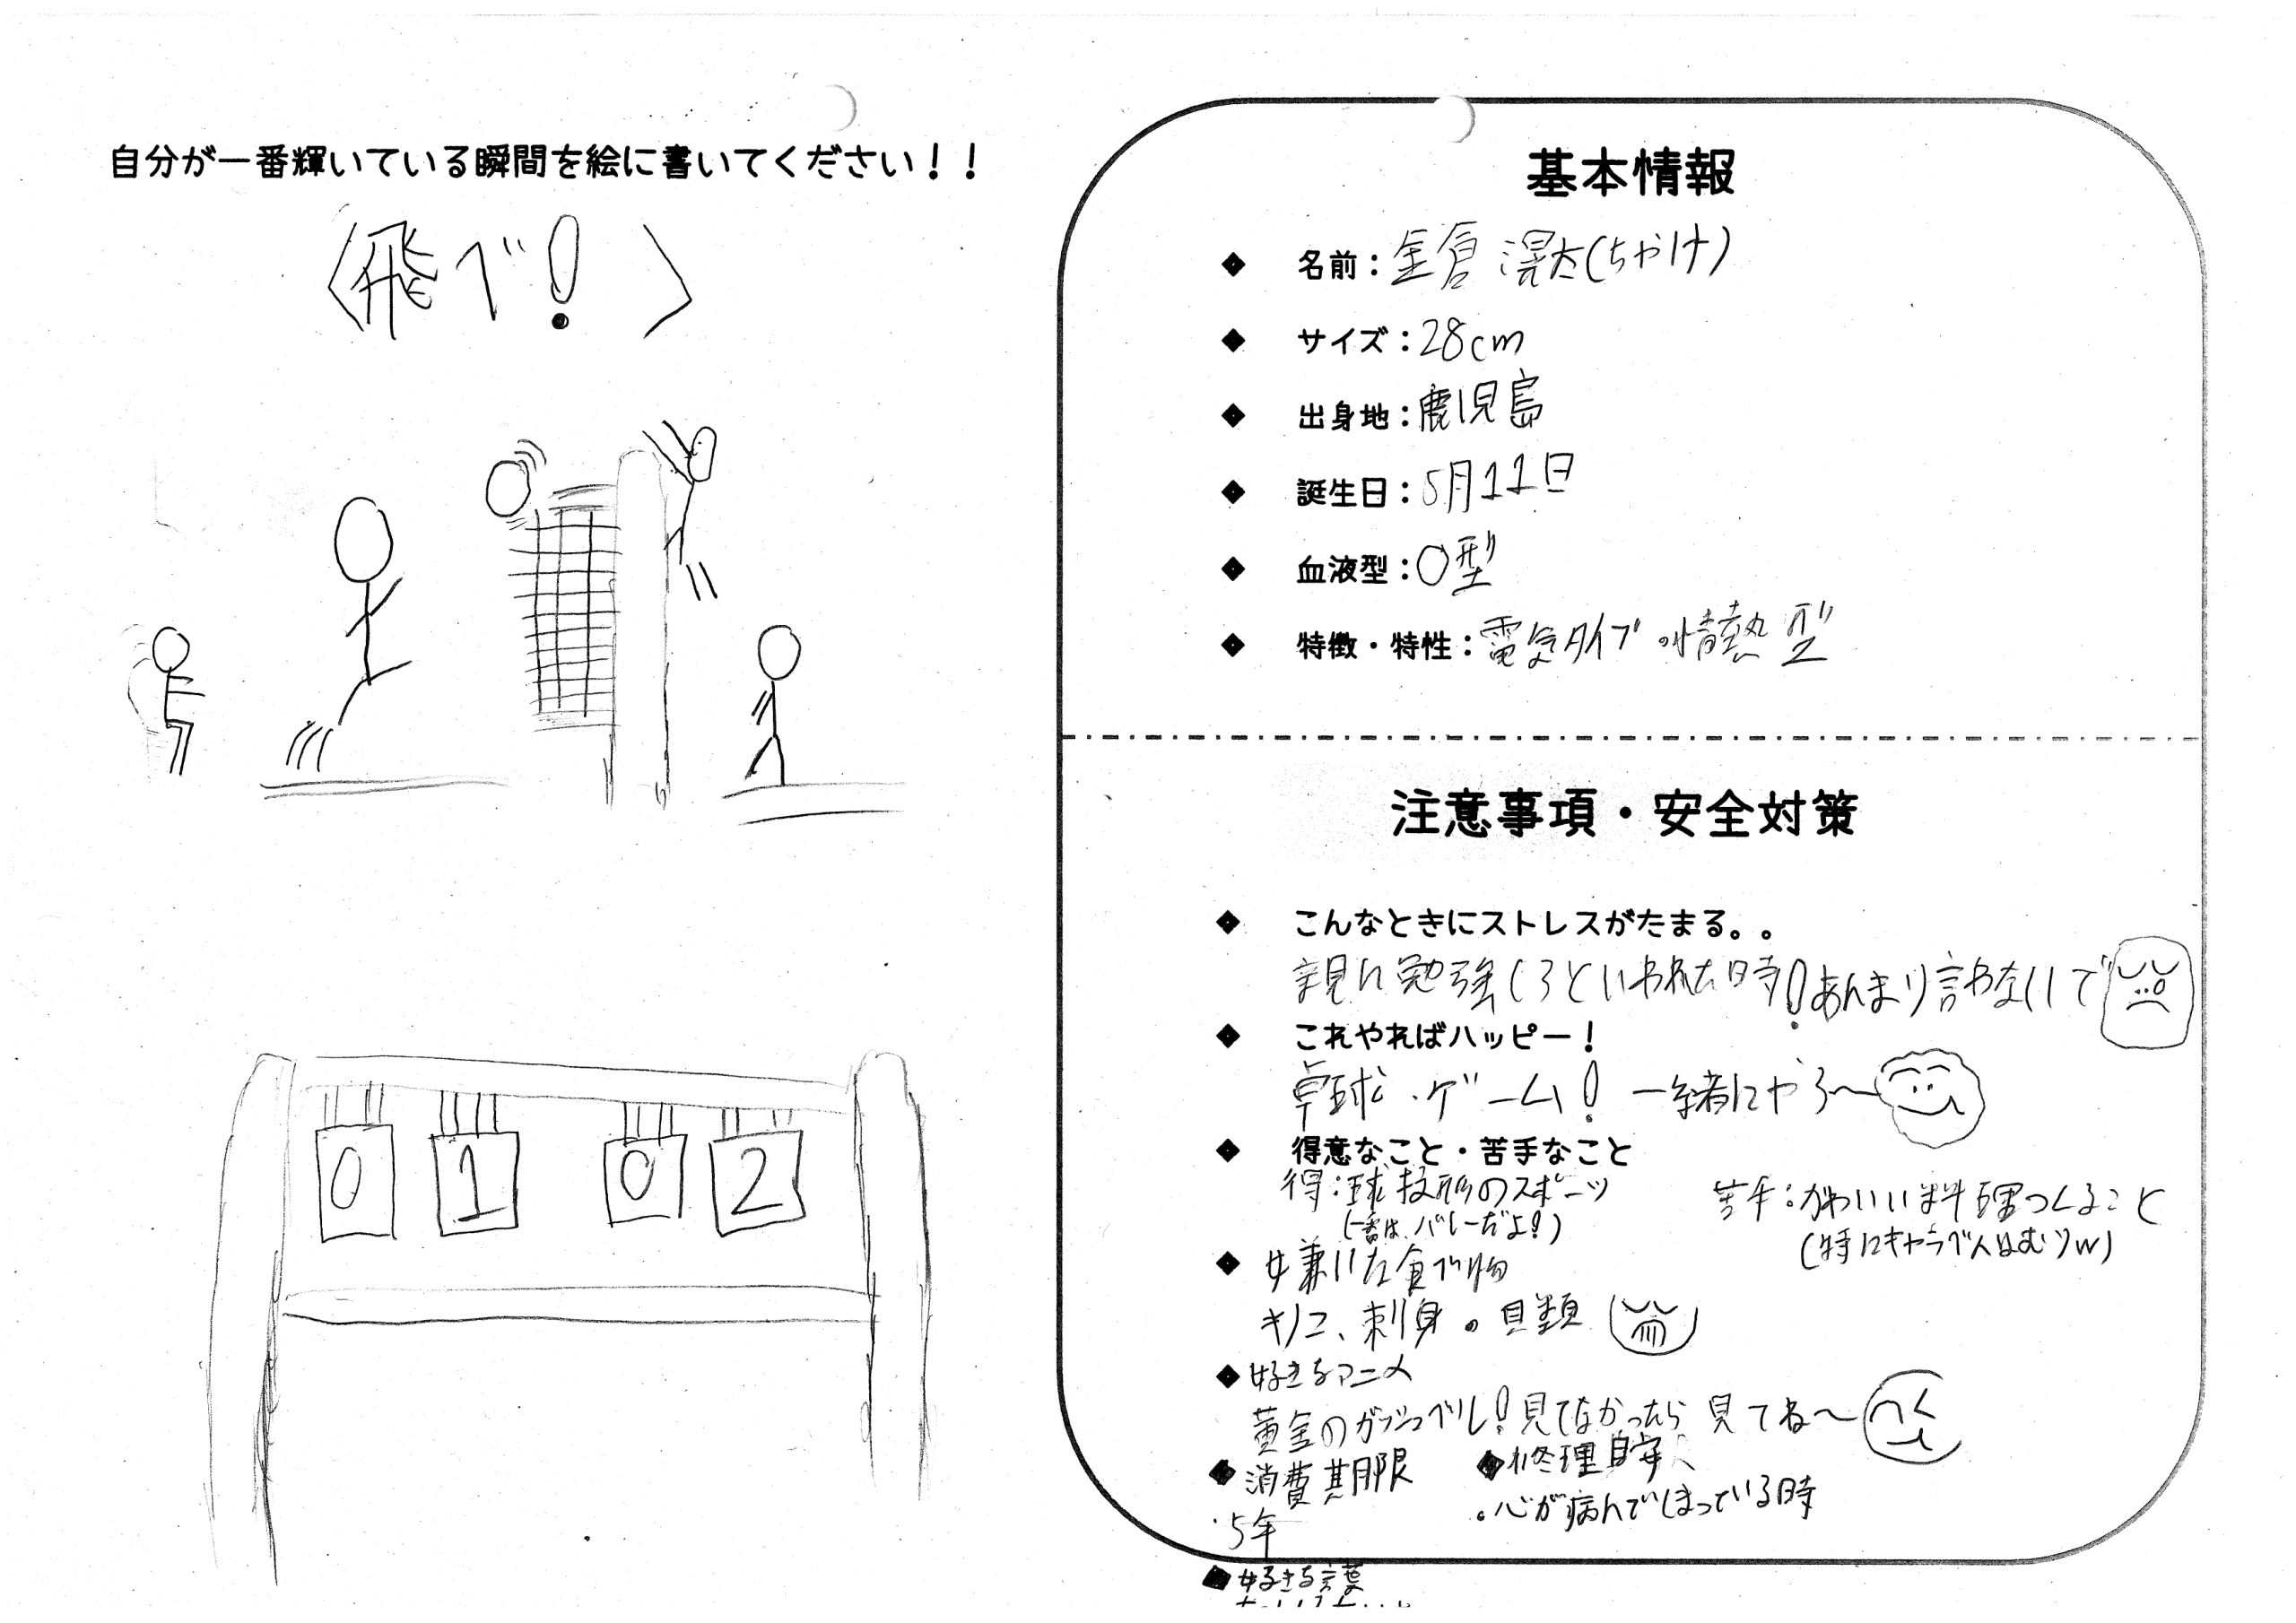 自分が一番輝いている瞬間を絵に書いてください！！
〈飛べ！〉
0 1 0 2
基本情報
◆ 名前：金倉 滉大(ちゃけ)
◆ サイズ：28cm
◆ 出身地：鹿児島
◆ 誕生日：5月11日
◆ 血液型：O型
◆ 特徴・特性：電気タイプの情熱型
注意事項・安全対策
◆ こんなときにストレスがたまる。。
親に勉強しろといわれた時！あんまり言わないで
◆ これやればハッピー！
卓球・ゲーム！ 一緒にやろ〜
◆ 得意なこと・苦手なこと
得：球技形のスポーツ
(一番は、バレーだよ！)
苦手：かわいい料理つくること
(特にキャラべんはむりw)
◆ 嫌いな食べ物
キノコ、刺身。貝類
◆ 好きなアニメ
黄金のガッシュベル！見てなかったら見てね〜
◆ 消費期限
・5年
◆ 修理目安
。心が病んでしまっている時
◆ 好きな言葉